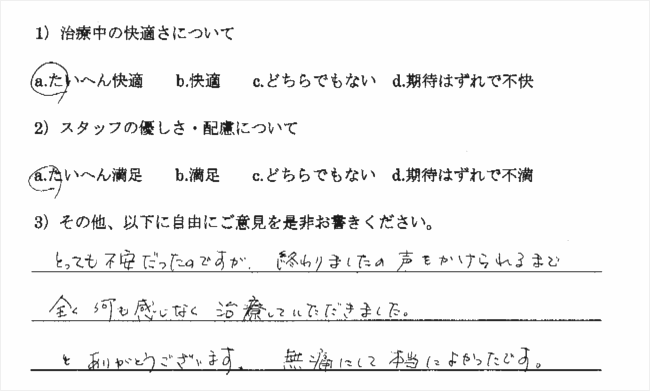 1）治療中の快適さについて
a.たいへん快適　b.快適　c.どちらでもない　d.期待はずれで不快
2）スタッフの優しさ・配慮について
a.たいへん満足　b.満足　c.どちらでもない　d.期待はずれで不満
3）その他、以下に自由にご意見を是非お書きください。
とっても不安だったのですが、終わりましたの声をかけられるまで
全く何も感じなく治療していただきました。
ありがとうございます。無痛にして本当によかったです。